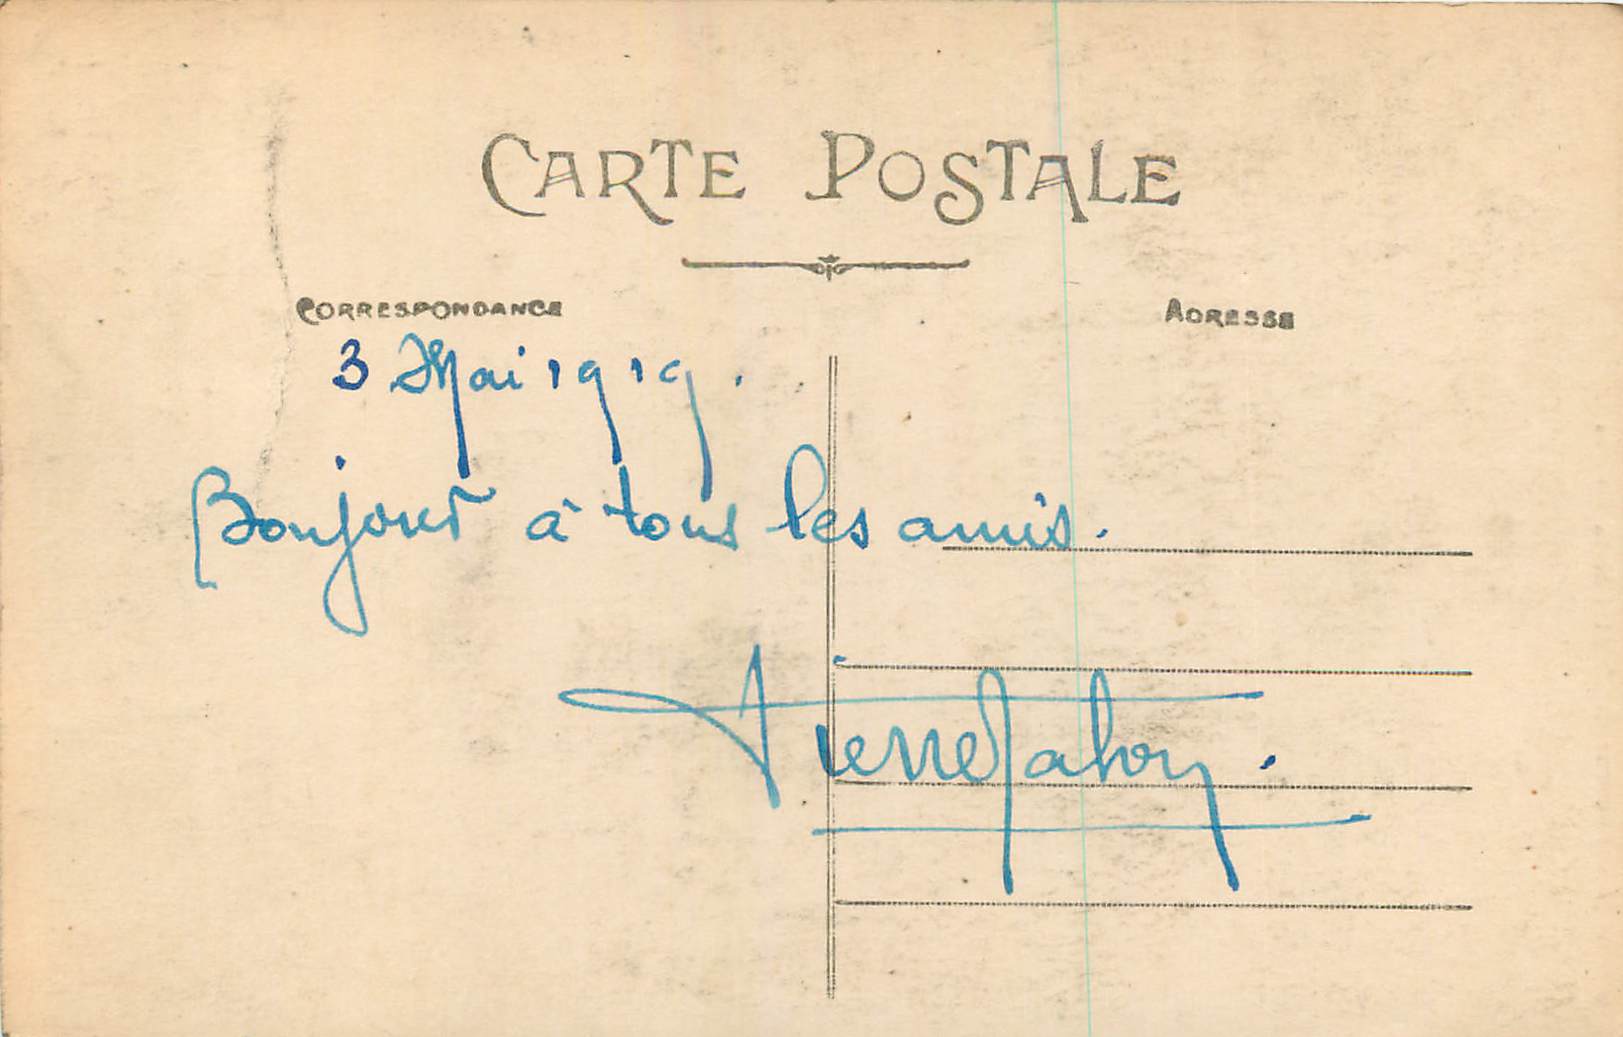 CARTE POSTALE
CORRESPONDANCE
ADRESSE
3 Mai 1919.
Bonjour à tous les amis.
Pierre